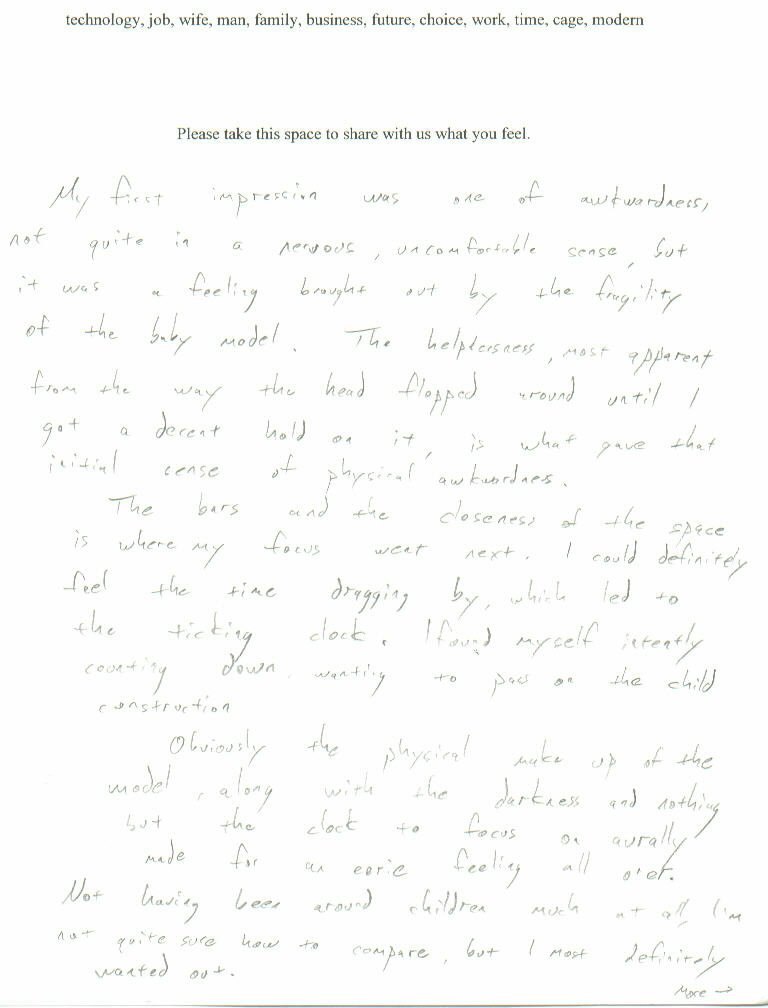 technology, job, wife, man, family, business, future, choice, work, time, cage, modern
Please take this space to share with us what you feel.
My first impression was one of awkwardness,
not quite in a nervous, uncomfortable sense, but
it was a feeling brought out by the fragility
of the baby model. The helplessness, most apparent
from the way the head flopped around until I
got a decent hold on it, is what gave that
initial sense of physical awkwardness.
The bars and the closeness of the space
is where my focus went next. I could definitely
feel the time dragging by, which led to
the ticking clock. I found myself intently
counting down, wanting to pass on the child
construction
Obviously the physical make up of the
model, along with the darkness and nothing
but the clock to focus on aurally
made for an eerie feeling all o'er.
Not having been around children much at all, I'm
not quite sure how to compare, but I most definitely
wanted out.
More →